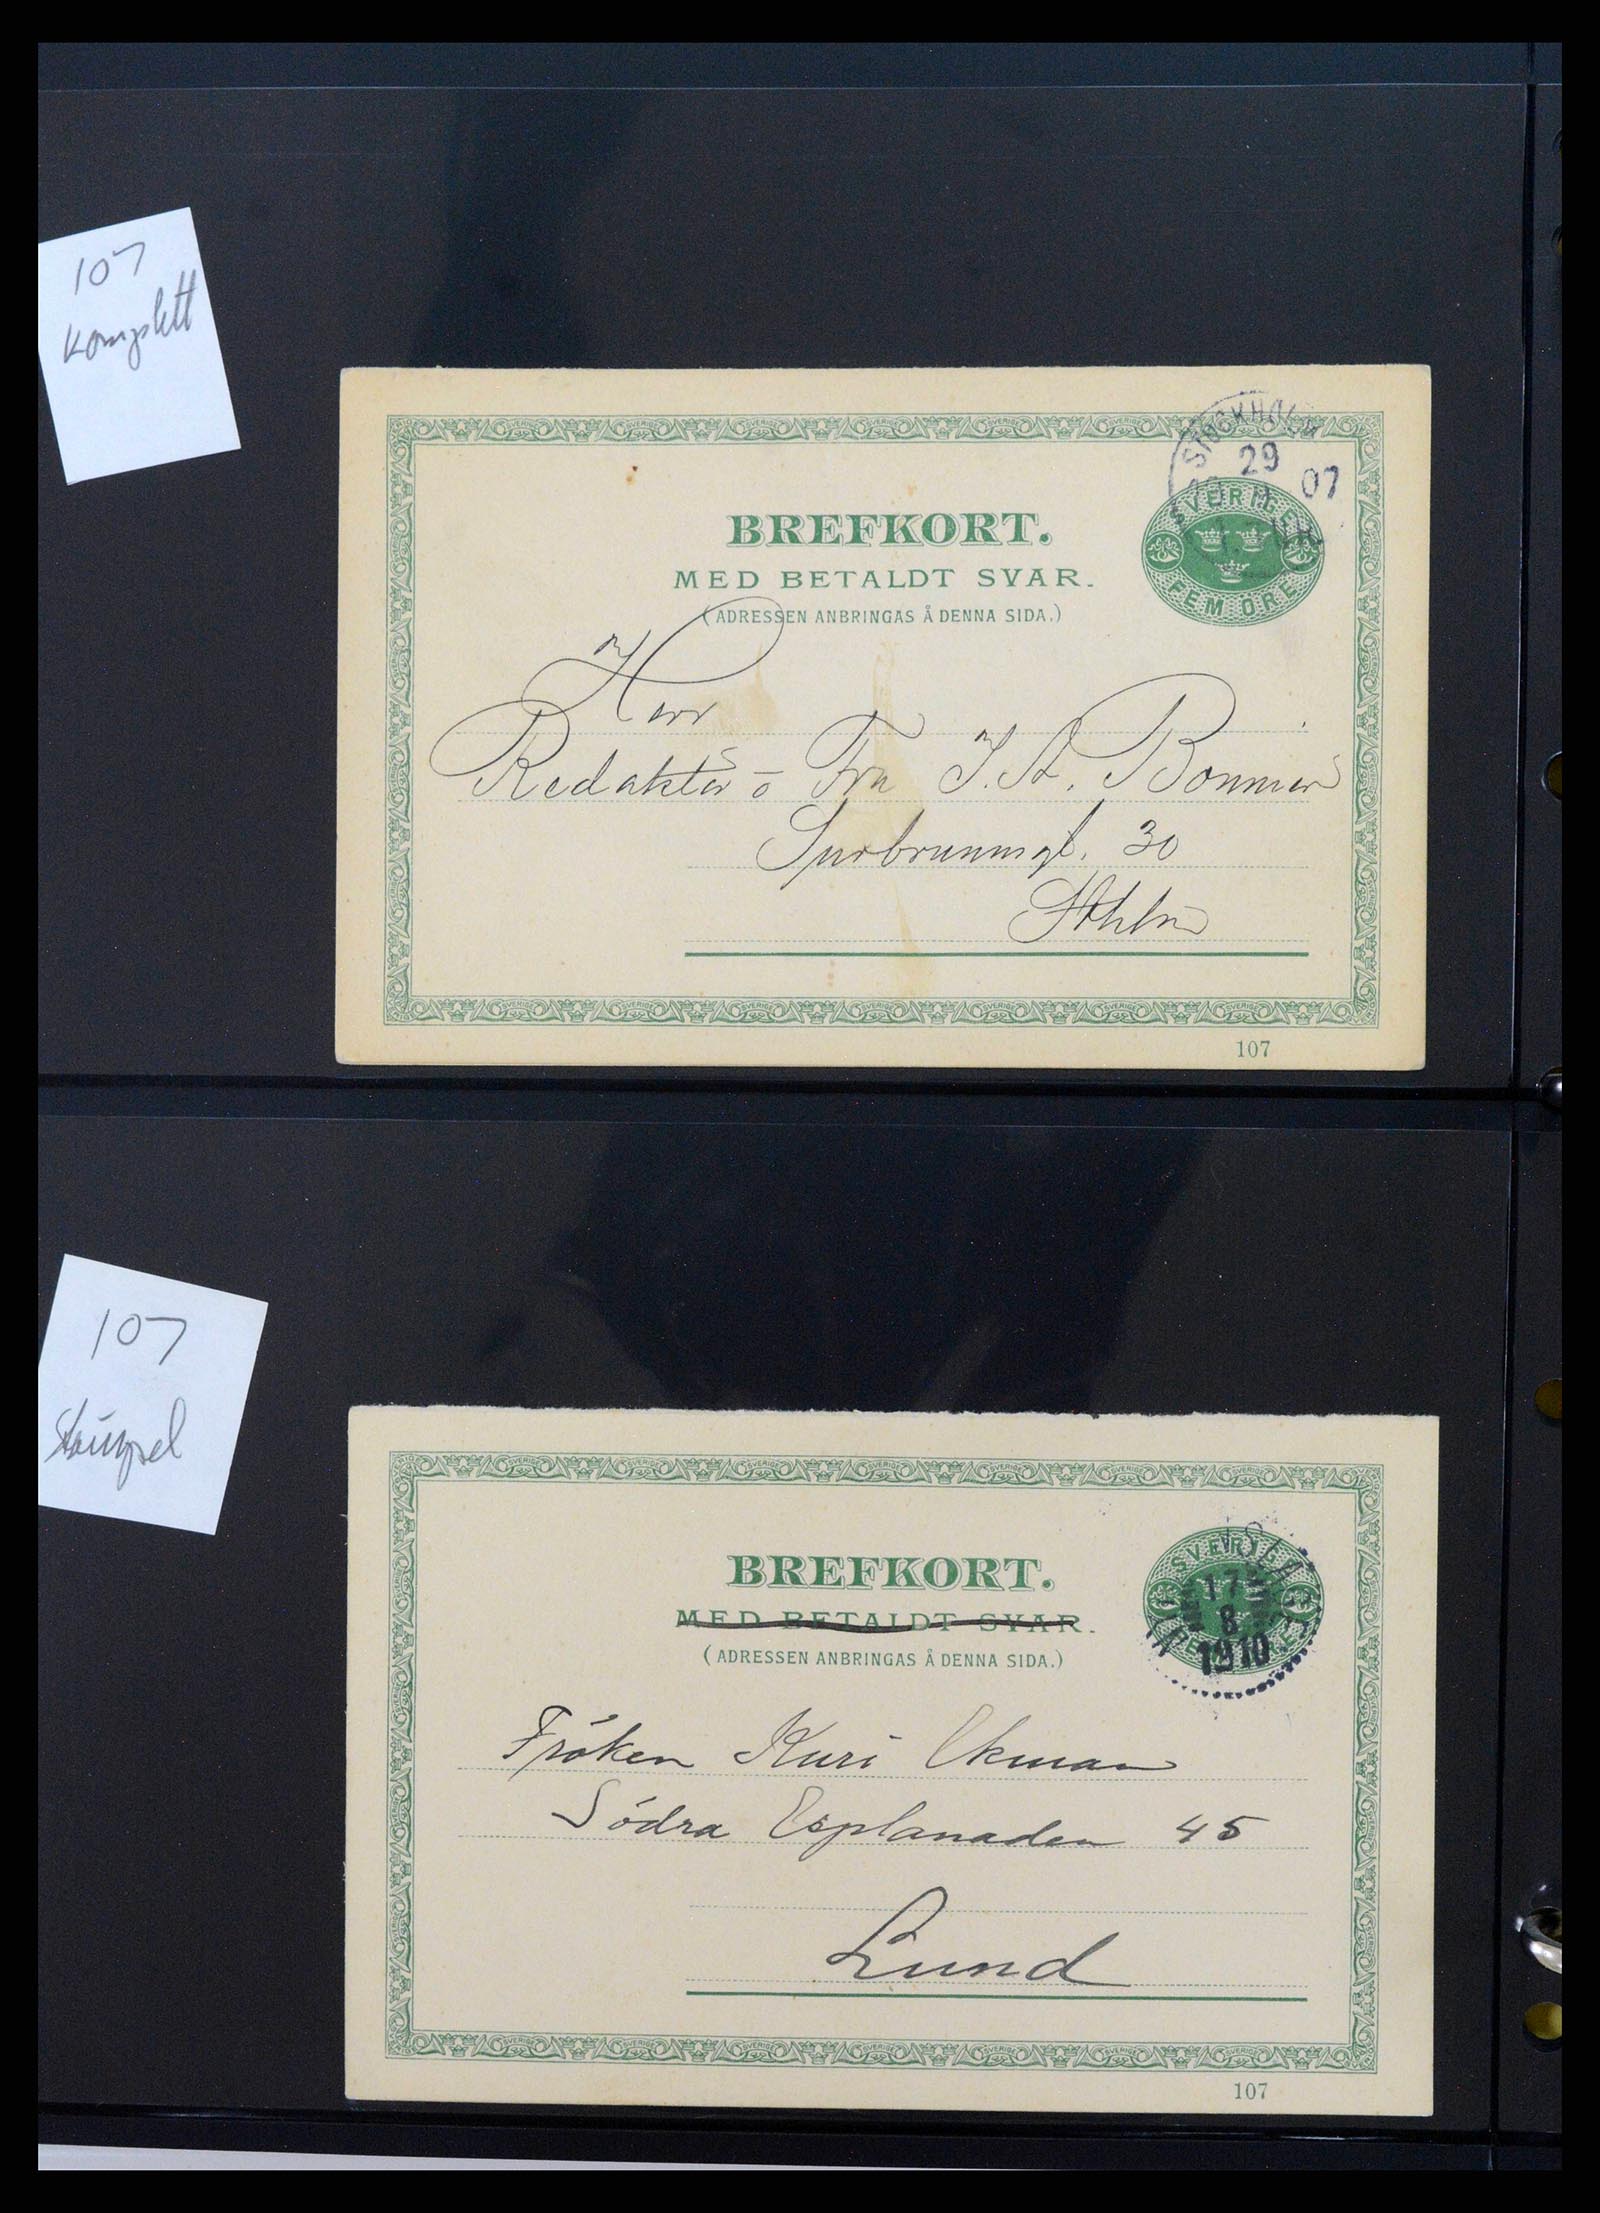 107
Komplett
STOCKHOLM
29
07
SVERIGE
FEM ÖRE
BREFKORT.
MED BETALDT SVAR.
(ADRESSEN ANBRINGAS Å DENNA SIDA.)
Herr
Redaktör o Fru J. A. Bonnier
Surbrunnsgt. 30
Sthlm
107
107
Stämpel
BREFKORT.
MED BETALDT SVAR.
(ADRESSEN ANBRINGAS Å DENNA SIDA.)
SVERIGE
17
8
1910
Fröken Kari Ekman
Södra Esplanaden 45
Lund
107